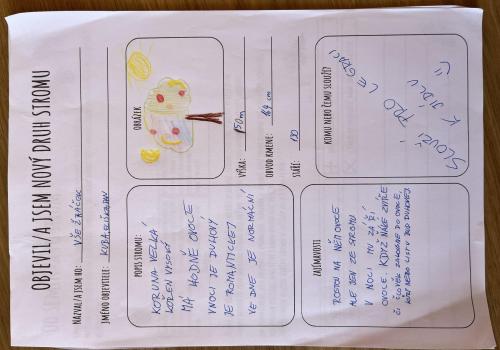 OBJEVIL/A JSEM NOVÝ DRUH STROMU
NAZVAL/A JSEM HO: VŠEŽRÁČEK
JMÉNO OBJEVITELE: KUBA
POPIS STROMU:
KORUNA VELKÁ
KOŘEN VYSOKÝ
MÁ HODNĚ OVOCE
V NOCI JE DUHOVÝ
JE ROMANTICKEJ
VE DNE JE NORMÁLNÍ
OBRÁZEK
VÝŠKA: 150m
OBVOD KMENE: 164 cm
STÁŘÍ: 120
ZAJÍMAVOSTI
ROSTOU NA NĚM OVOCE
ALE JEN ZE STROMU
V NOCI MU ZÁŘÍ
OVOCE. KDYŽ NĚJAKÉ ZVÍŘE
ČI ČLOVĚK ZAKOUSNE DO OVOCE,
KŮRY NEBO LISTU JSOU DUHOVEJ
KOMU NEBO ČEMU SLOUŽÍ?
SLOUŽÍ PRO LEGRACI
K JÍDLU